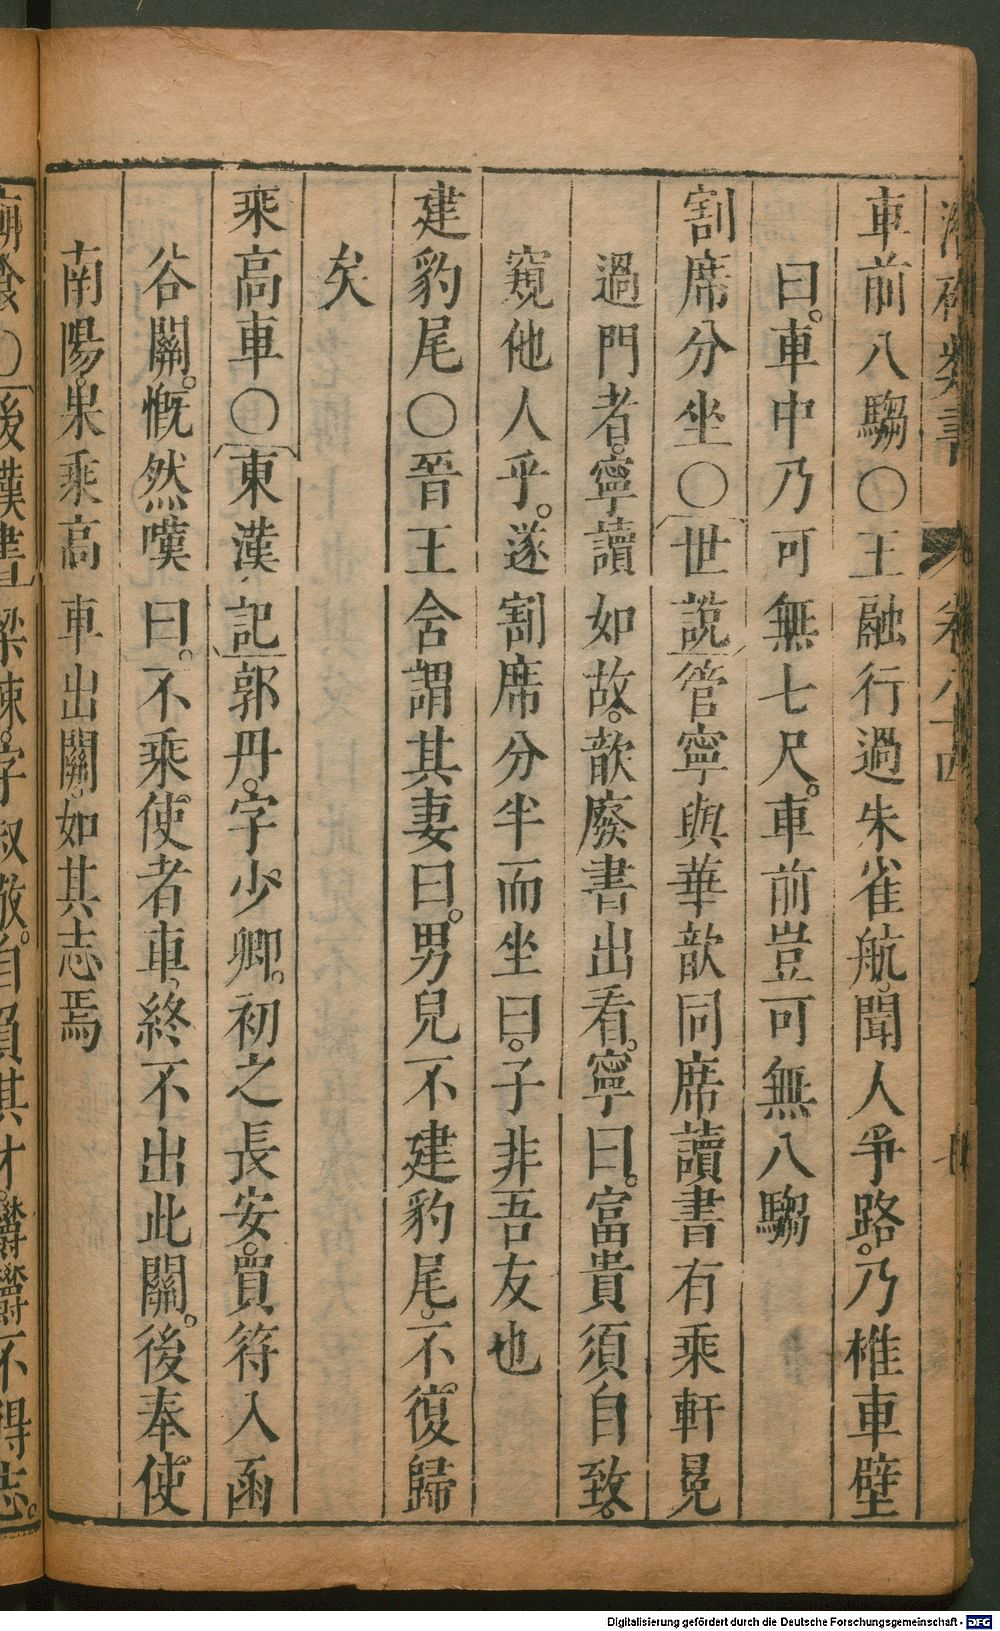 卷八十四
車前八騶○王融行過朱雀航。聞人爭路。乃椎車壁
曰。車中乃可無七尺。車前豈可無八騶
割席分坐○世說管寧與華歆同席讀書有乘軒冕
過門者。寧讀如故。歆廢書出看。寧曰。富貴須自致。
窺他人乎。遂割席分半而坐曰。子非吾友也
建豹尾○晉王含謂其妻曰。男兒不建豹尾。不復歸
矣
乘高車○東漢記郭丹。字少卿。初之長安。買符入函
谷關。慨然嘆曰。不乘使者車。終不出此關。後奉使
南陽。果乘高車出關。如其志焉
○後漢書梁竦。字叔敬。自負其才。鬱鬱不得志。
Digitalisierung gefördert durch die Deutsche Forschungsgemeinschaft - DFG